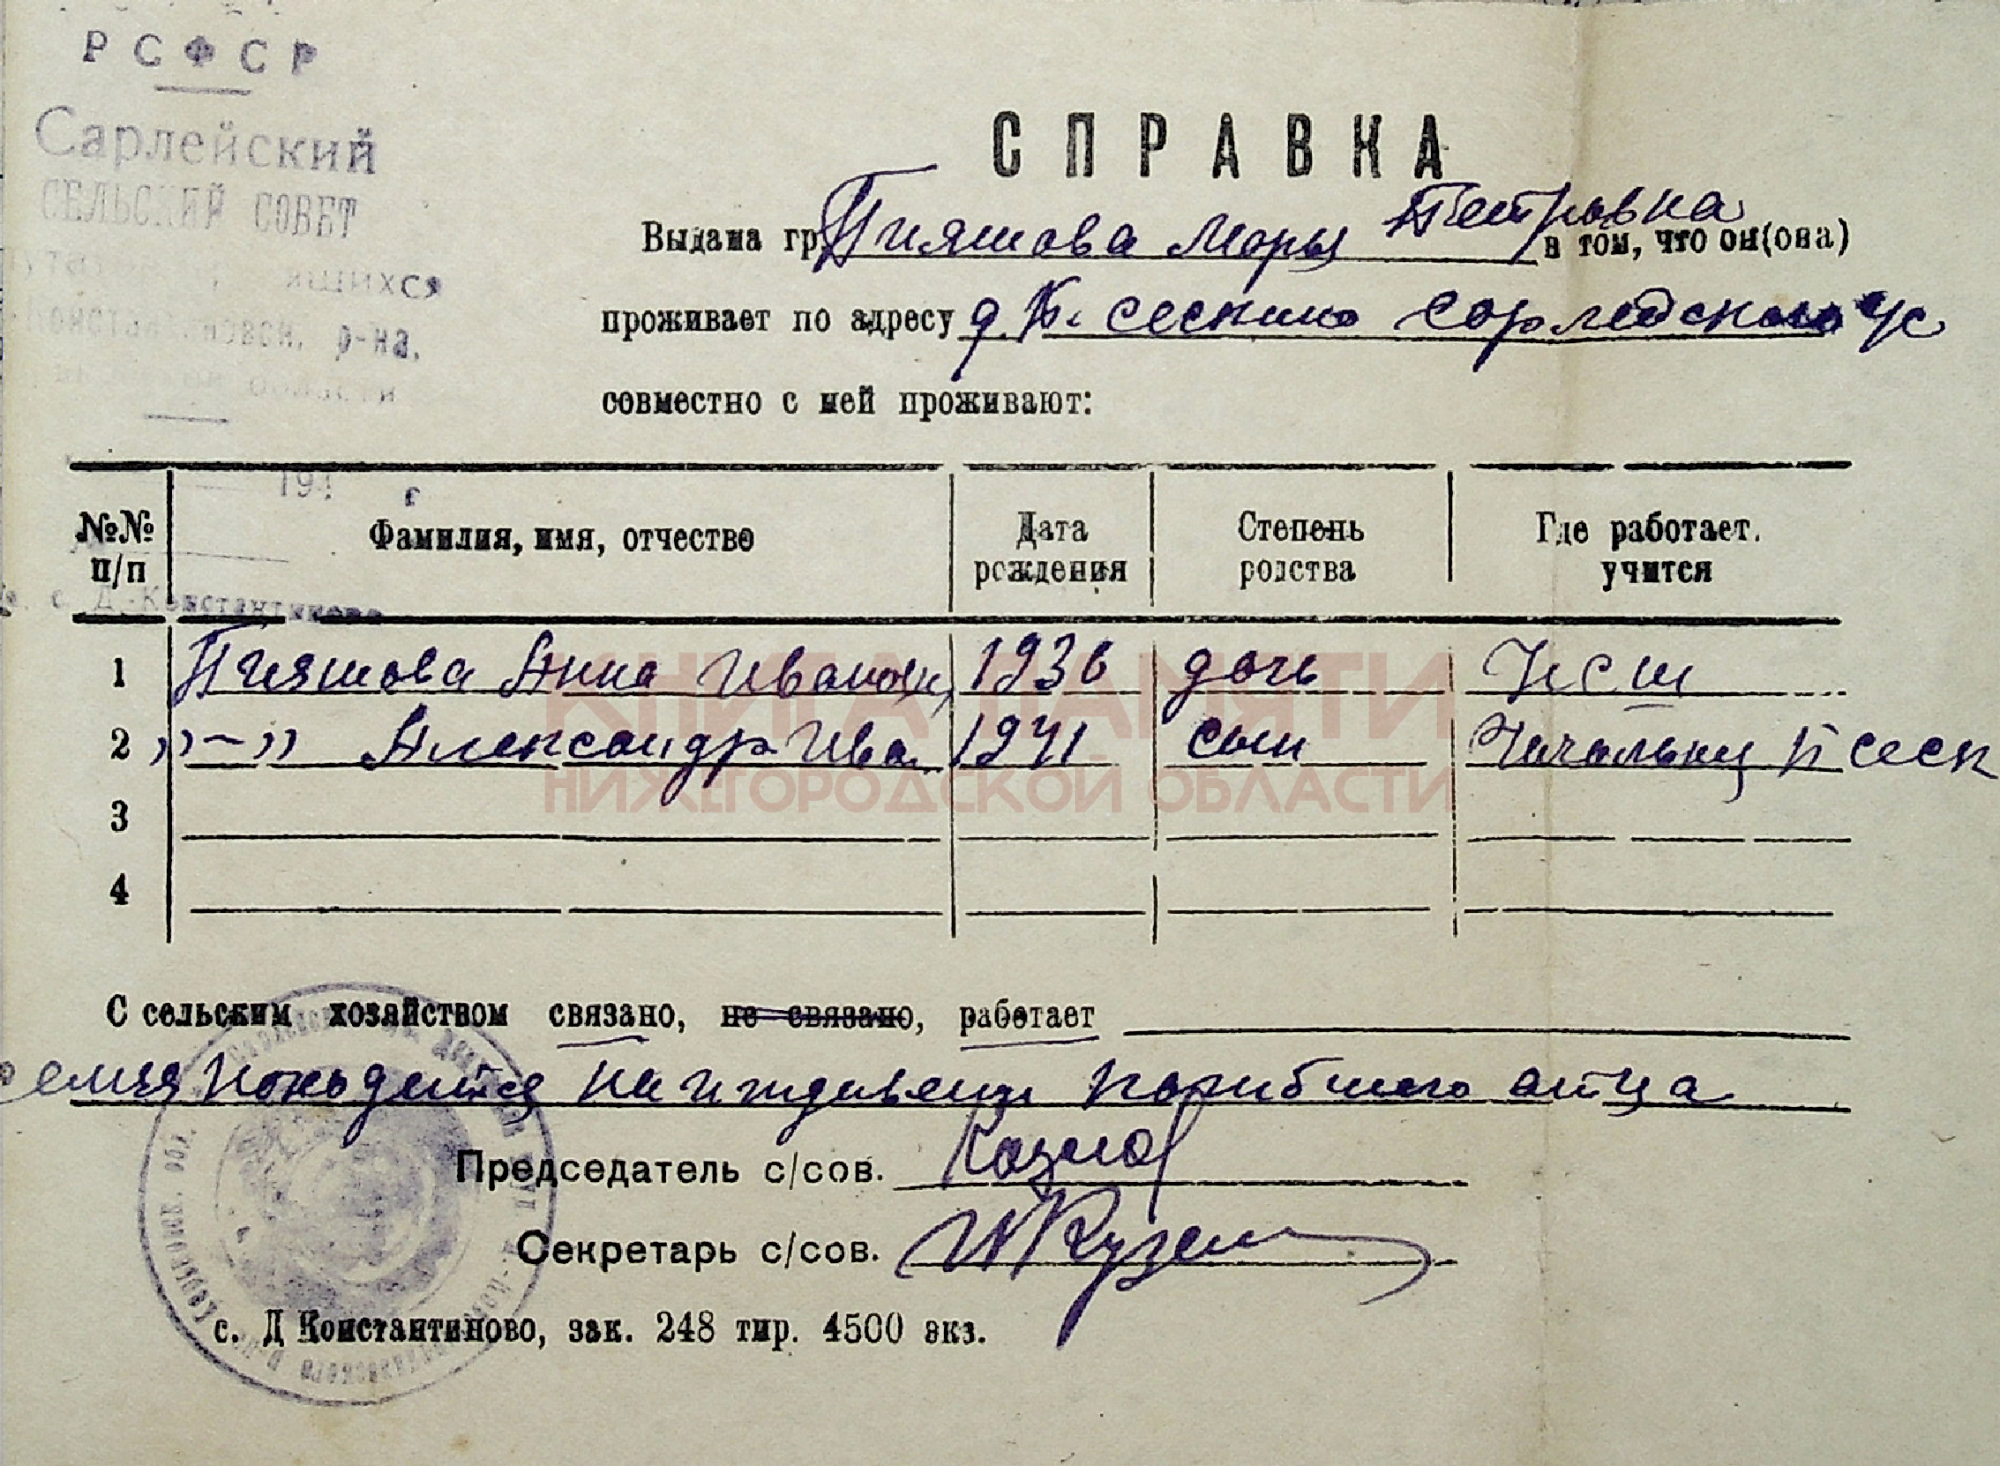 РСФСР
Сарлейский
СЕЛЬСКИЙ СОВЕТ
р-на.
области
194 г
с. Д.-Константиново
СПРАВКА
Выдана гр. Пияшова Мары Петровна в том, что он(она)
проживает по адресу д. К. сескино Сарлейского с/с
совместно с ней проживают:
№№ п/п Фамилия, имя, отчество Дата рождения Степень родства Где работает. учится
1 Пияшова Анна Ивановн 1936 дочь НСШ
2 „—„ Александр Ива. 1941 сын Начальн К сеск
3
4
КНИГА ПАМЯТИ
НИЖЕГОРОДСКОЙ ОБЛАСТИ
С сельским хозяйством связано, не связано, работает
семья находится на иждивении погибшего отца
Председатель с/сов. Козлов
Секретарь с/сов.
с. Д Константиново, зак. 248 тир. 4500 экз.